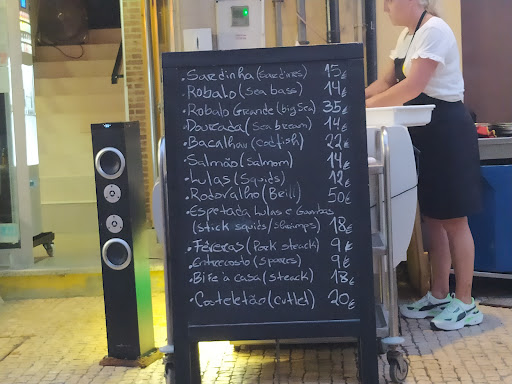 • Sardinha (Sardines) 15€
• Robalo (Sea bass) 14€
• Robalo Grande (big Sea) 35€
• Dourada (Sea bream) 14€
• Bacalhau (codfish) 22€
• Salmão (Salmom) 14€
• Lulas (Squids) 12€
• Rodovalho (Brill) 50€
• Espetada Lulas e Gambas
(stick squids/shrimps) 18€
• Féveras (Pork steack) 9€
• Entrecosto (spares) 9€
• Bife à casa (steack) 18€
• Costeletão (cutlet) 20€